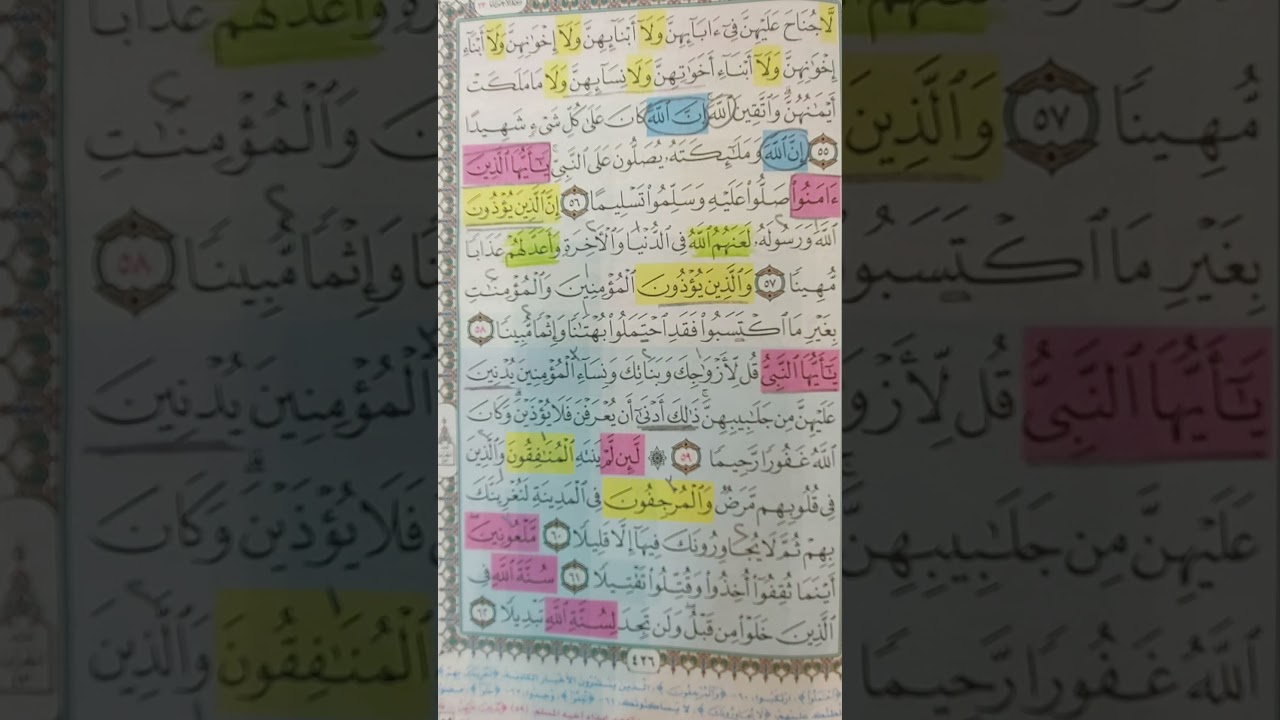 لَّا جُنَاحَ عَلَيْهِنَّ فِىٓ ءَابَآئِهِنَّ وَلَآ أَبْنَآئِهِنَّ وَلَآ إِخْوَٰنِهِنَّ وَلَآ أَبْنَآءِ
إِخْوَٰنِهِنَّ وَلَآ أَبْنَآءِ أَخَوَٰتِهِنَّ وَلَا نِسَآئِهِنَّ وَلَا مَا مَلَكَتْ
أَيْمَٰنُهُنَّۗ وَٱتَّقِينَ ٱللَّهَۚ إِنَّ ٱللَّهَ كَانَ عَلَىٰ كُلِّ شَىْءٍ شَهِيدًا
٥٥ إِنَّ ٱللَّهَ وَمَلَٰٓئِكَتَهُۥ يُصَلُّونَ عَلَى ٱلنَّبِىِّۚ يَٰٓأَيُّهَا ٱلَّذِينَ
ءَامَنُوا۟ صَلُّوا۟ عَلَيْهِ وَسَلِّمُوا۟ تَسْلِيمًا ٥٦ إِنَّ ٱلَّذِينَ يُؤْذُونَ
ٱللَّهَ وَرَسُولَهُۥ لَعَنَهُمُ ٱللَّهُ فِى ٱلدُّنْيَا وَٱلْءَاخِرَةِ وَأَعَدَّ لَهُمْ عَذَابًا
مُّهِينًا ٥٧ وَٱلَّذِينَ يُؤْذُونَ ٱلْمُؤْمِنِينَ وَٱلْمُؤْمِنَٰتِ
بِغَيْرِ مَا ٱكْتَسَبُوا۟ فَقَدِ ٱحْتَمَلُوا۟ بُهْتَٰنًا وَإِثْمًا مُّبِينًا ٥٨
يَٰٓأَيُّهَا ٱلنَّبِىُّ قُل لِّأَزْوَٰجِكَ وَبَنَاتِكَ وَنِسَآءِ ٱلْمُؤْمِنِينَ يُدْنِينَ
عَلَيْهِنَّ مِن جَلَٰبِيبِهِنَّۚ ذَٰلِكَ أَدْنَىٰٓ أَن يُعْرَفْنَ فَلَا يُؤْذَيْنَۗ وَكَانَ
ٱللَّهُ غَفُورًا رَّحِيمًا ٥٩ ۞ لَّئِن لَّمْ يَنتَهِ ٱلْمُنَٰفِقُونَ وَٱلَّذِينَ
فِى قُلُوبِهِم مَّرَضٌ وَٱلْمُرْجِفُونَ فِى ٱلْمَدِينَةِ لَنُغْرِيَنَّكَ
بِهِمْ ثُمَّ لَا يُجَاوِرُونَكَ فِيهَآ إِلَّا قَلِيلًا ٦٠ مَّلْعُونِينَۖ
أَيْنَمَا ثُقِفُوٓا۟ أُخِذُوا۟ وَقُتِّلُوا۟ تَقْتِيلًا ٦١ سُنَّةَ ٱللَّهِ فِى
ٱلَّذِينَ خَلَوْا۟ مِن قَبْلُۖ وَلَن تَجِدَ لِسُنَّةِ ٱللَّهِ تَبْدِيلًا ٦٢
٤٢٦
ارتكبوا، ٦٠- ﴿وَالْمُرْجِفُونَ﴾: الذين ينشرون الأخبار الكاذبة